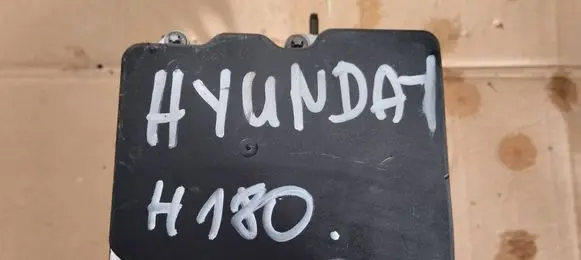 HYUNDAI
H180.